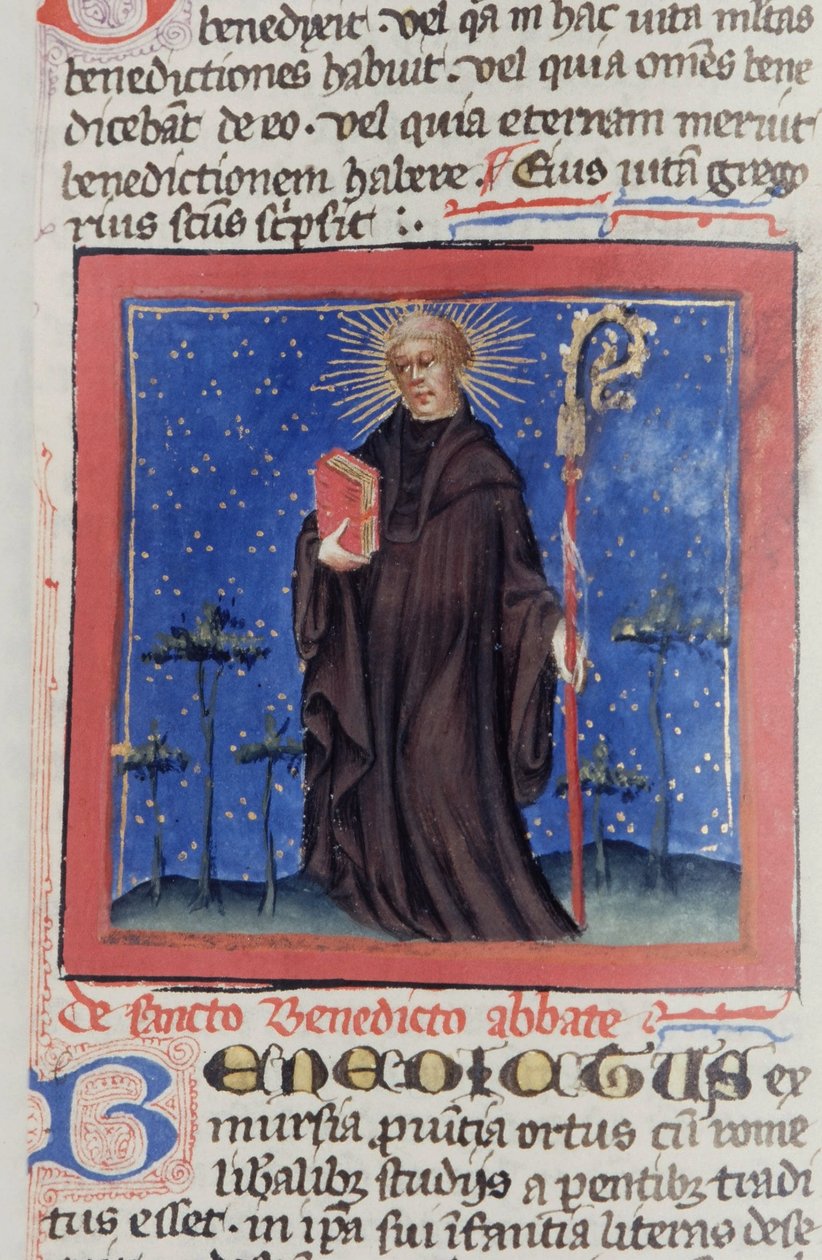 benedixit . vel q̄a in hac uita ml̄tas
benedictiones habuit . vel quia om̄es bene
dicebāt de eo . vel quia eternam meruit
benedictionem habere . ¶ Eius uitā grego
rius scūs scͥpsit :.
De sancto Benedicto abbate
BENEDICTUS ex
nursia ꝓuī̄tia ortus cū rome
libālibꝫ studijs a pentibꝫ tradi
tus esset . in ipā sui īfantia literas dese